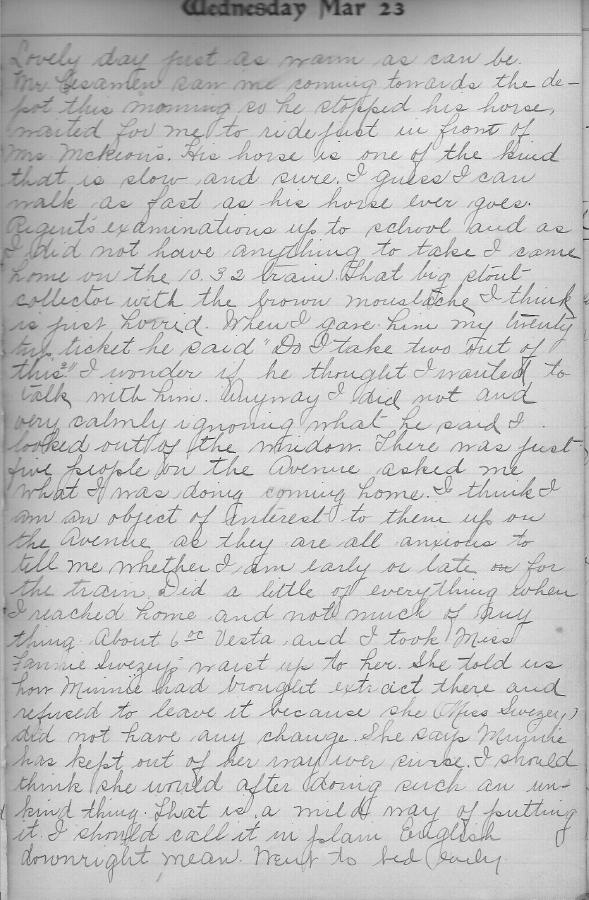 Wednesday Mar 23
Lovely day just as warm as can be.
Mr. saw me coming towards the de-
pot this morning so he stopped his horse,
waited for me to ride just in front of
Mrs McKeon's. His horse is one of the kind
that is slow and sure. I guess I can
walk as fast as his horse ever goes.
Regent's examinations up to school and as
I did not have anything to take I came
home on the 10.32 train. That big stout
collector with the brown moustache I think
is just horrid. When I gave him my twenty
trip ticket he said "Do I take two out of
this?" I wonder if he thought I wanted to
talk with him. Anyway I did not and
very calmly ignoring what he said I
looked out of the window. There was just
five people on the Avenue asked me
what I was doing coming home. I think I
am an object of interest to them up on
the Avenue as they are all anxious to
tell me whether I am early or late on for
the train. Did a little of everything when
I reached home and not much of any
thing. About 6 oc Vesta and I took Miss
Fannie Swezey's waist up to her. She told us
how Minnie had brought extract there and
refused to leave it because she (Miss Swezey)
did not have any change. She says Minnie
has kept out of her way ever since. I should
think she would after doing such an un-
kind thing. That is a mild way of putting
it. I should call it in plain English
downright mean. Went to bed early